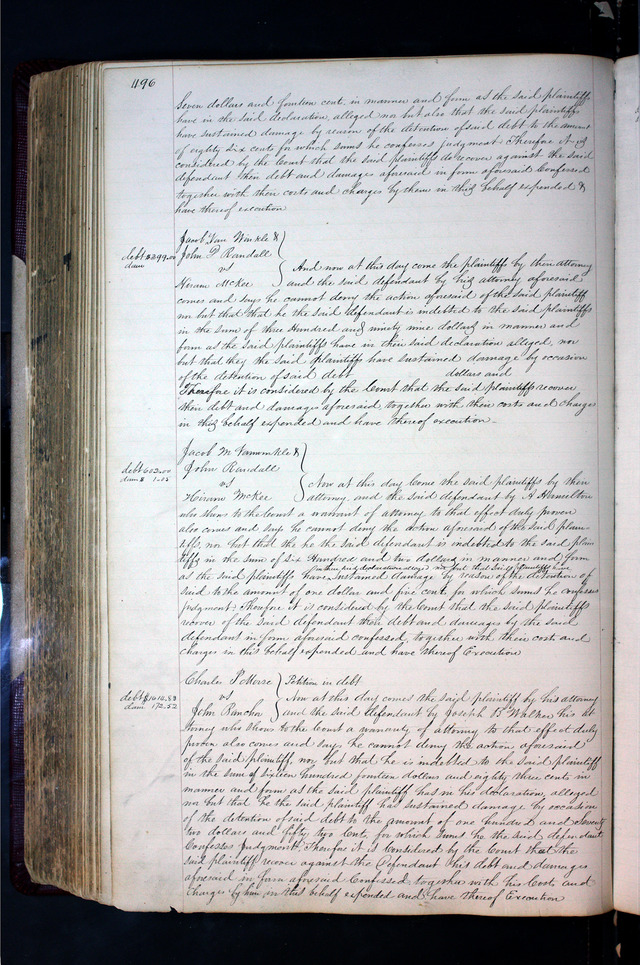 496
Seven dollars and fourteen cent. in manner and form as the said plaintiffs
have in the said declaration, alleged nor but also that the said plaintiffs
have sustained damage by reason of the detention of said debt to the amount
of eighty six cents for which sums he confesses judgment Therefore it is
considered by the Court that the said plaintiffs do recover against the said
defendant then debt and damages aforesaid in form aforesaid Confessed
together with their costs and charges by them in this behalf expended &
have thereof execution
Jacob Van Winkle &
John P Randall
debt $299.00
dam
vs And now at this day come the plaintiffs by then attorney
Hiram McKee and the said defendant by his attorney aforesaid
comes and says he cannot deny the action aforesaid of the said plaintiff
nor but that that he the said defendant is indebted to the said plaintiffs
in the sum of three Hundred and ninety nine dollars in manner and
form as the said plaintiffs have in their said declaration alleged, nor
but that they the said plaintiffs have sustained damage by occasion
of the detention of said debt dollars and
Therefore it is considered by the Court that the said plaintiffs recover
then debt and damages aforesaid together with their costs and charges
in this behalf expended and have thereof execution.
Jacob M Vanwinkle &
John Randall
debt 602.00
dam $ 1.05
vs Now at this day Come the said plaintiffs by then
Hiram McKee attorney and the said defendant by A Hamilton
who shows to the Court a warrant of attorney to that effect duly proven
also comes and says he cannot deny the action aforesaid of the said plain-
tiffs, nor but that the he the said defendant is indebted to the said plain
tiffs in the sum of Six Hundred and two dollars in manner and form
in their said declaration alleged nor but that said plaintiffs have
as the said plaintiffs have sustained damage by reason of the detention of
said to the amount of one dollar and five cent, for which sums he confesses
judgment: Therefore it is considered by the Court that the said plaintiffs
recover of the said defendant then debt and damages by the said
defendant in form aforesaid confessed, together with their costs and
charges in this behalf expended and have thereof Execution
Charles P Morse Petition in debt
debt $1614.83
dam 172.52
vs Now at this day comes the said plaintiff by his attorney
John and the said defendant by Joseph B Walker his at
torney who shows to the Court a warrant of attorney to that effect duly
proven also comes and says he cannot deny the action aforesaid
of the said plaintiff, nor but that he is indebted to the said plaintiff
in the sum of Sixteen hundred fourteen dollars and eighty three cents in
manner and form as the said plaintiff has in his declaration, alleged
nor but that he the said plaintiff has sustained damage by occasion
of the detention of said debt to the amount of one hundred and seventy
two dollars and fifty two Cent, for which sums he the said defendant
Confesses judgment, Therefore it is Considered by the Court that the
said plaintiff recover against the Defendant his debt and damages
aforesaid in form aforesaid Confessed together with his Costs and
Charges by him in this behalf expended and have thereof Execution